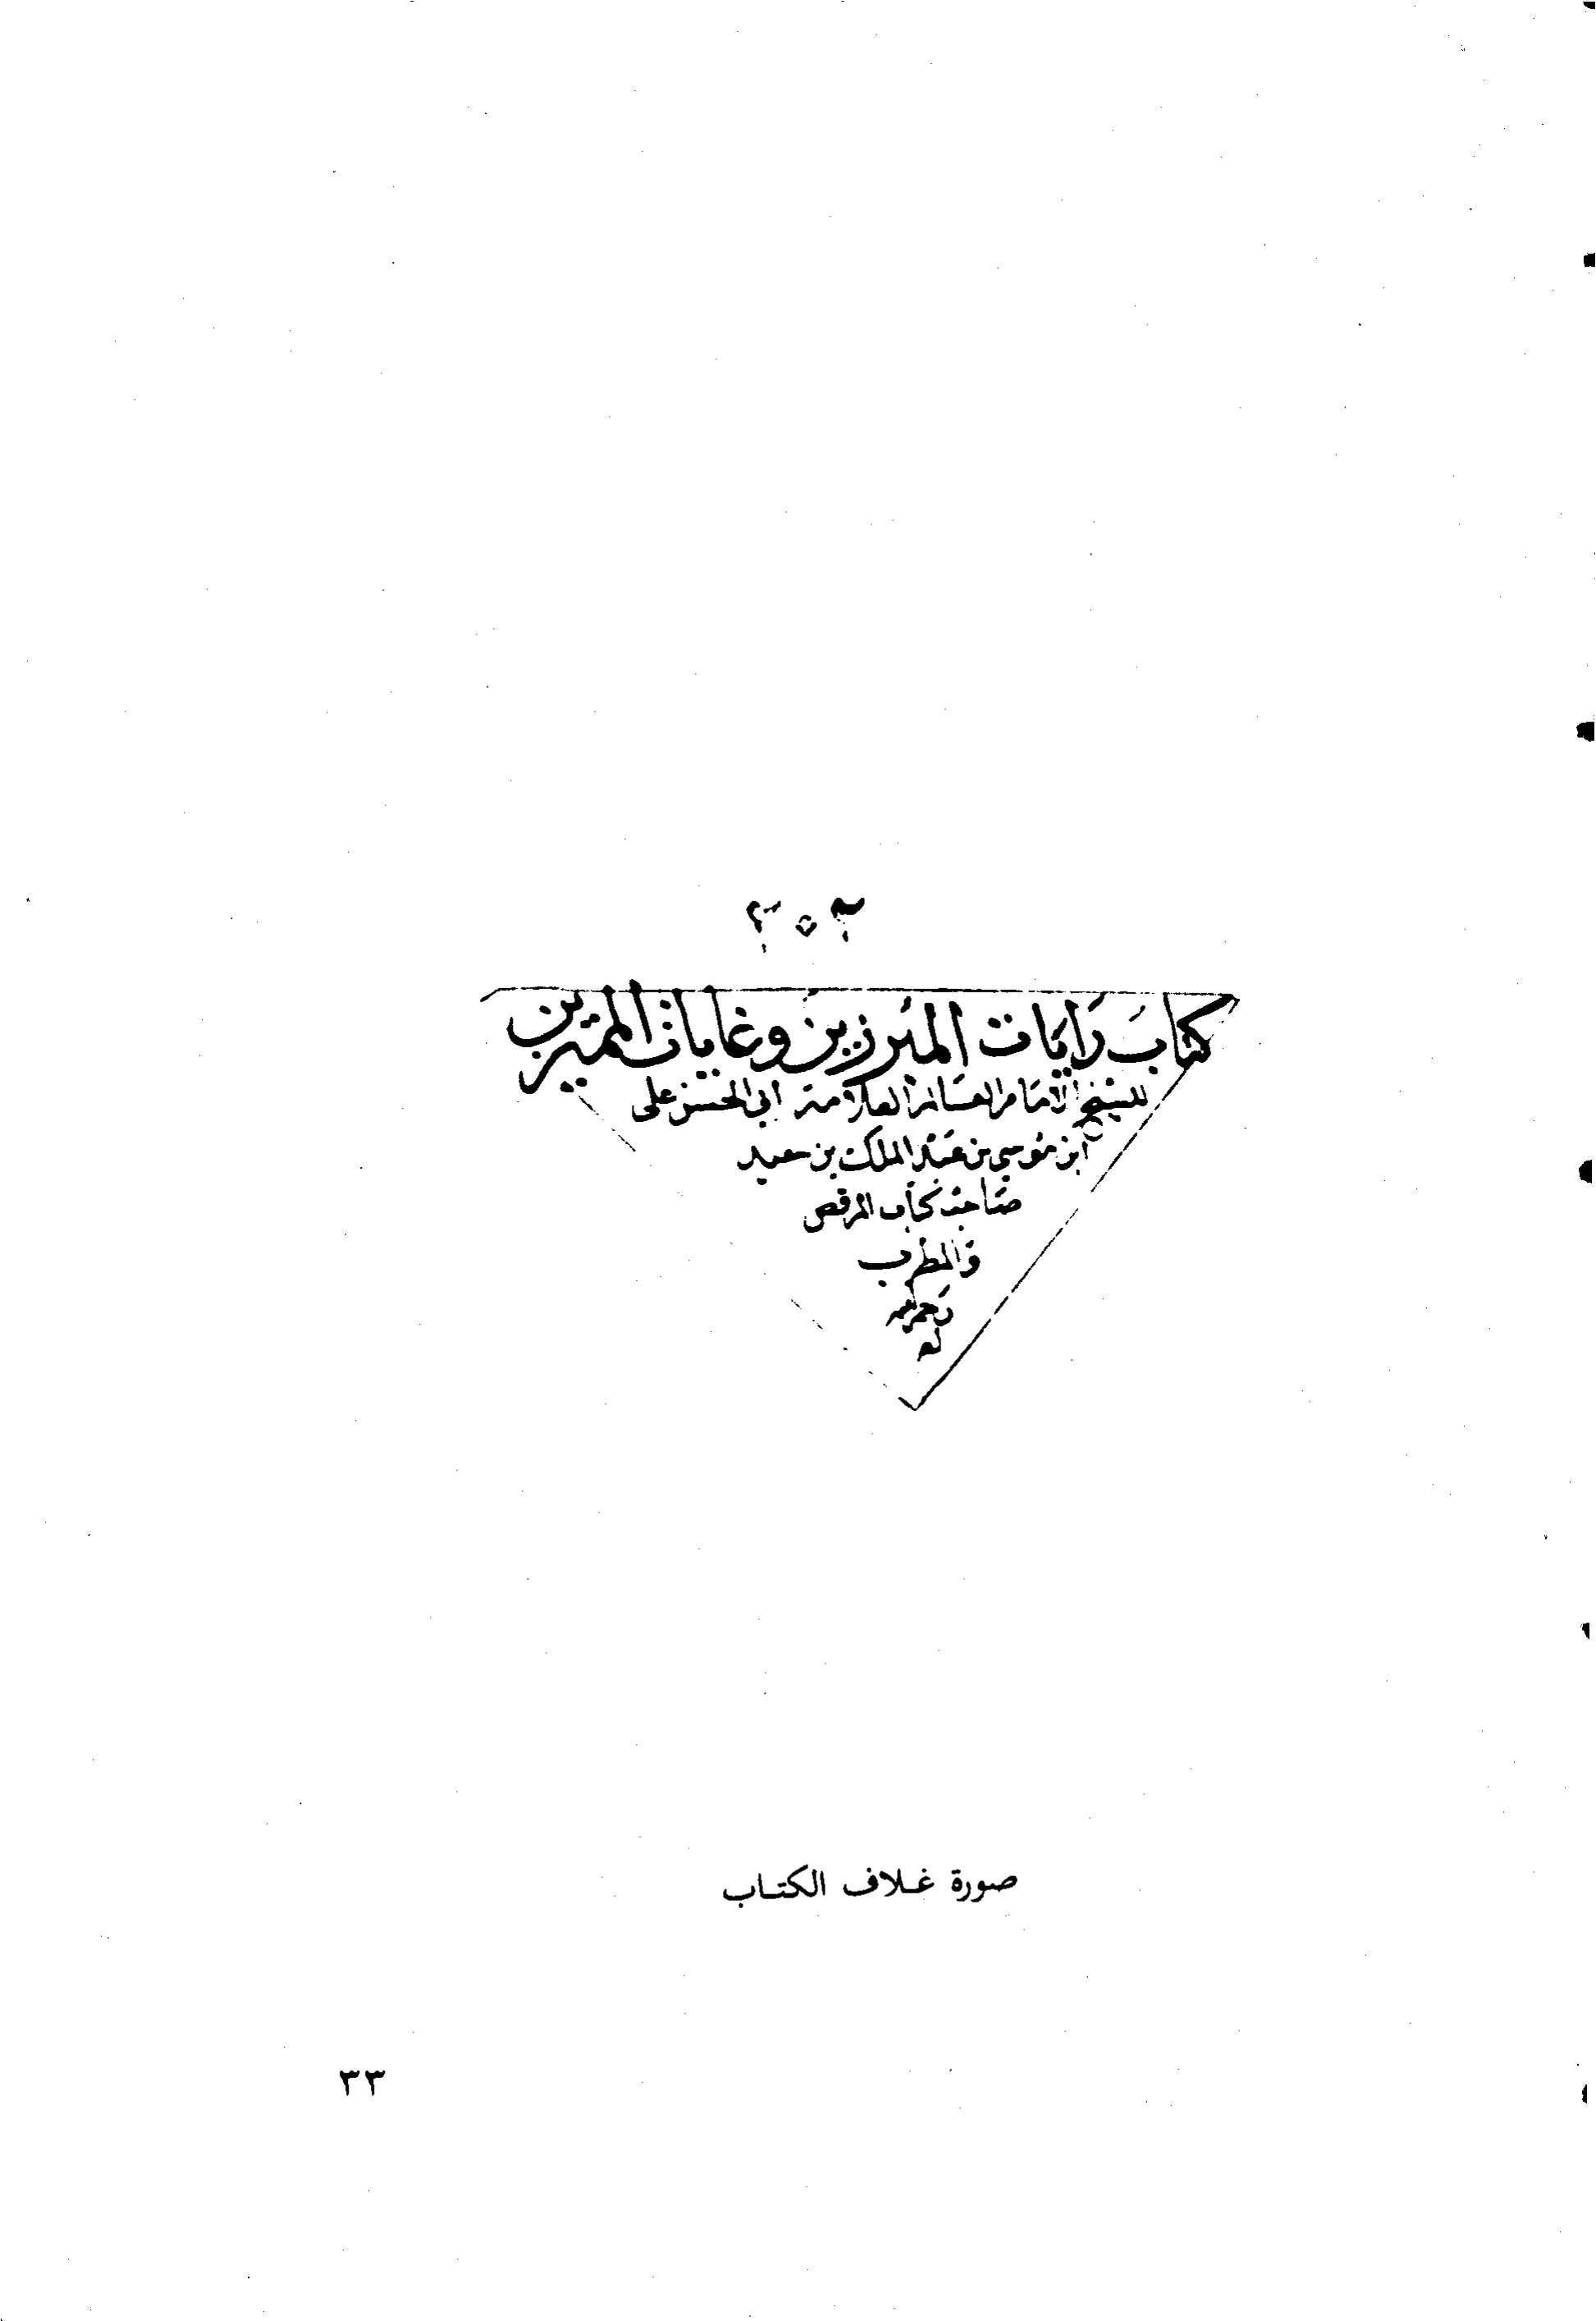 كتاب رايات المبرزين وغايات المميزين
للشيخ الامام العالم العلامة ابى الحسن على
ابن موسى بن عبد الملك بن سعيد
صاحب كتاب المرقص
والمطرب
رحمه الله
صورة غلاف الكتاب
٣٣